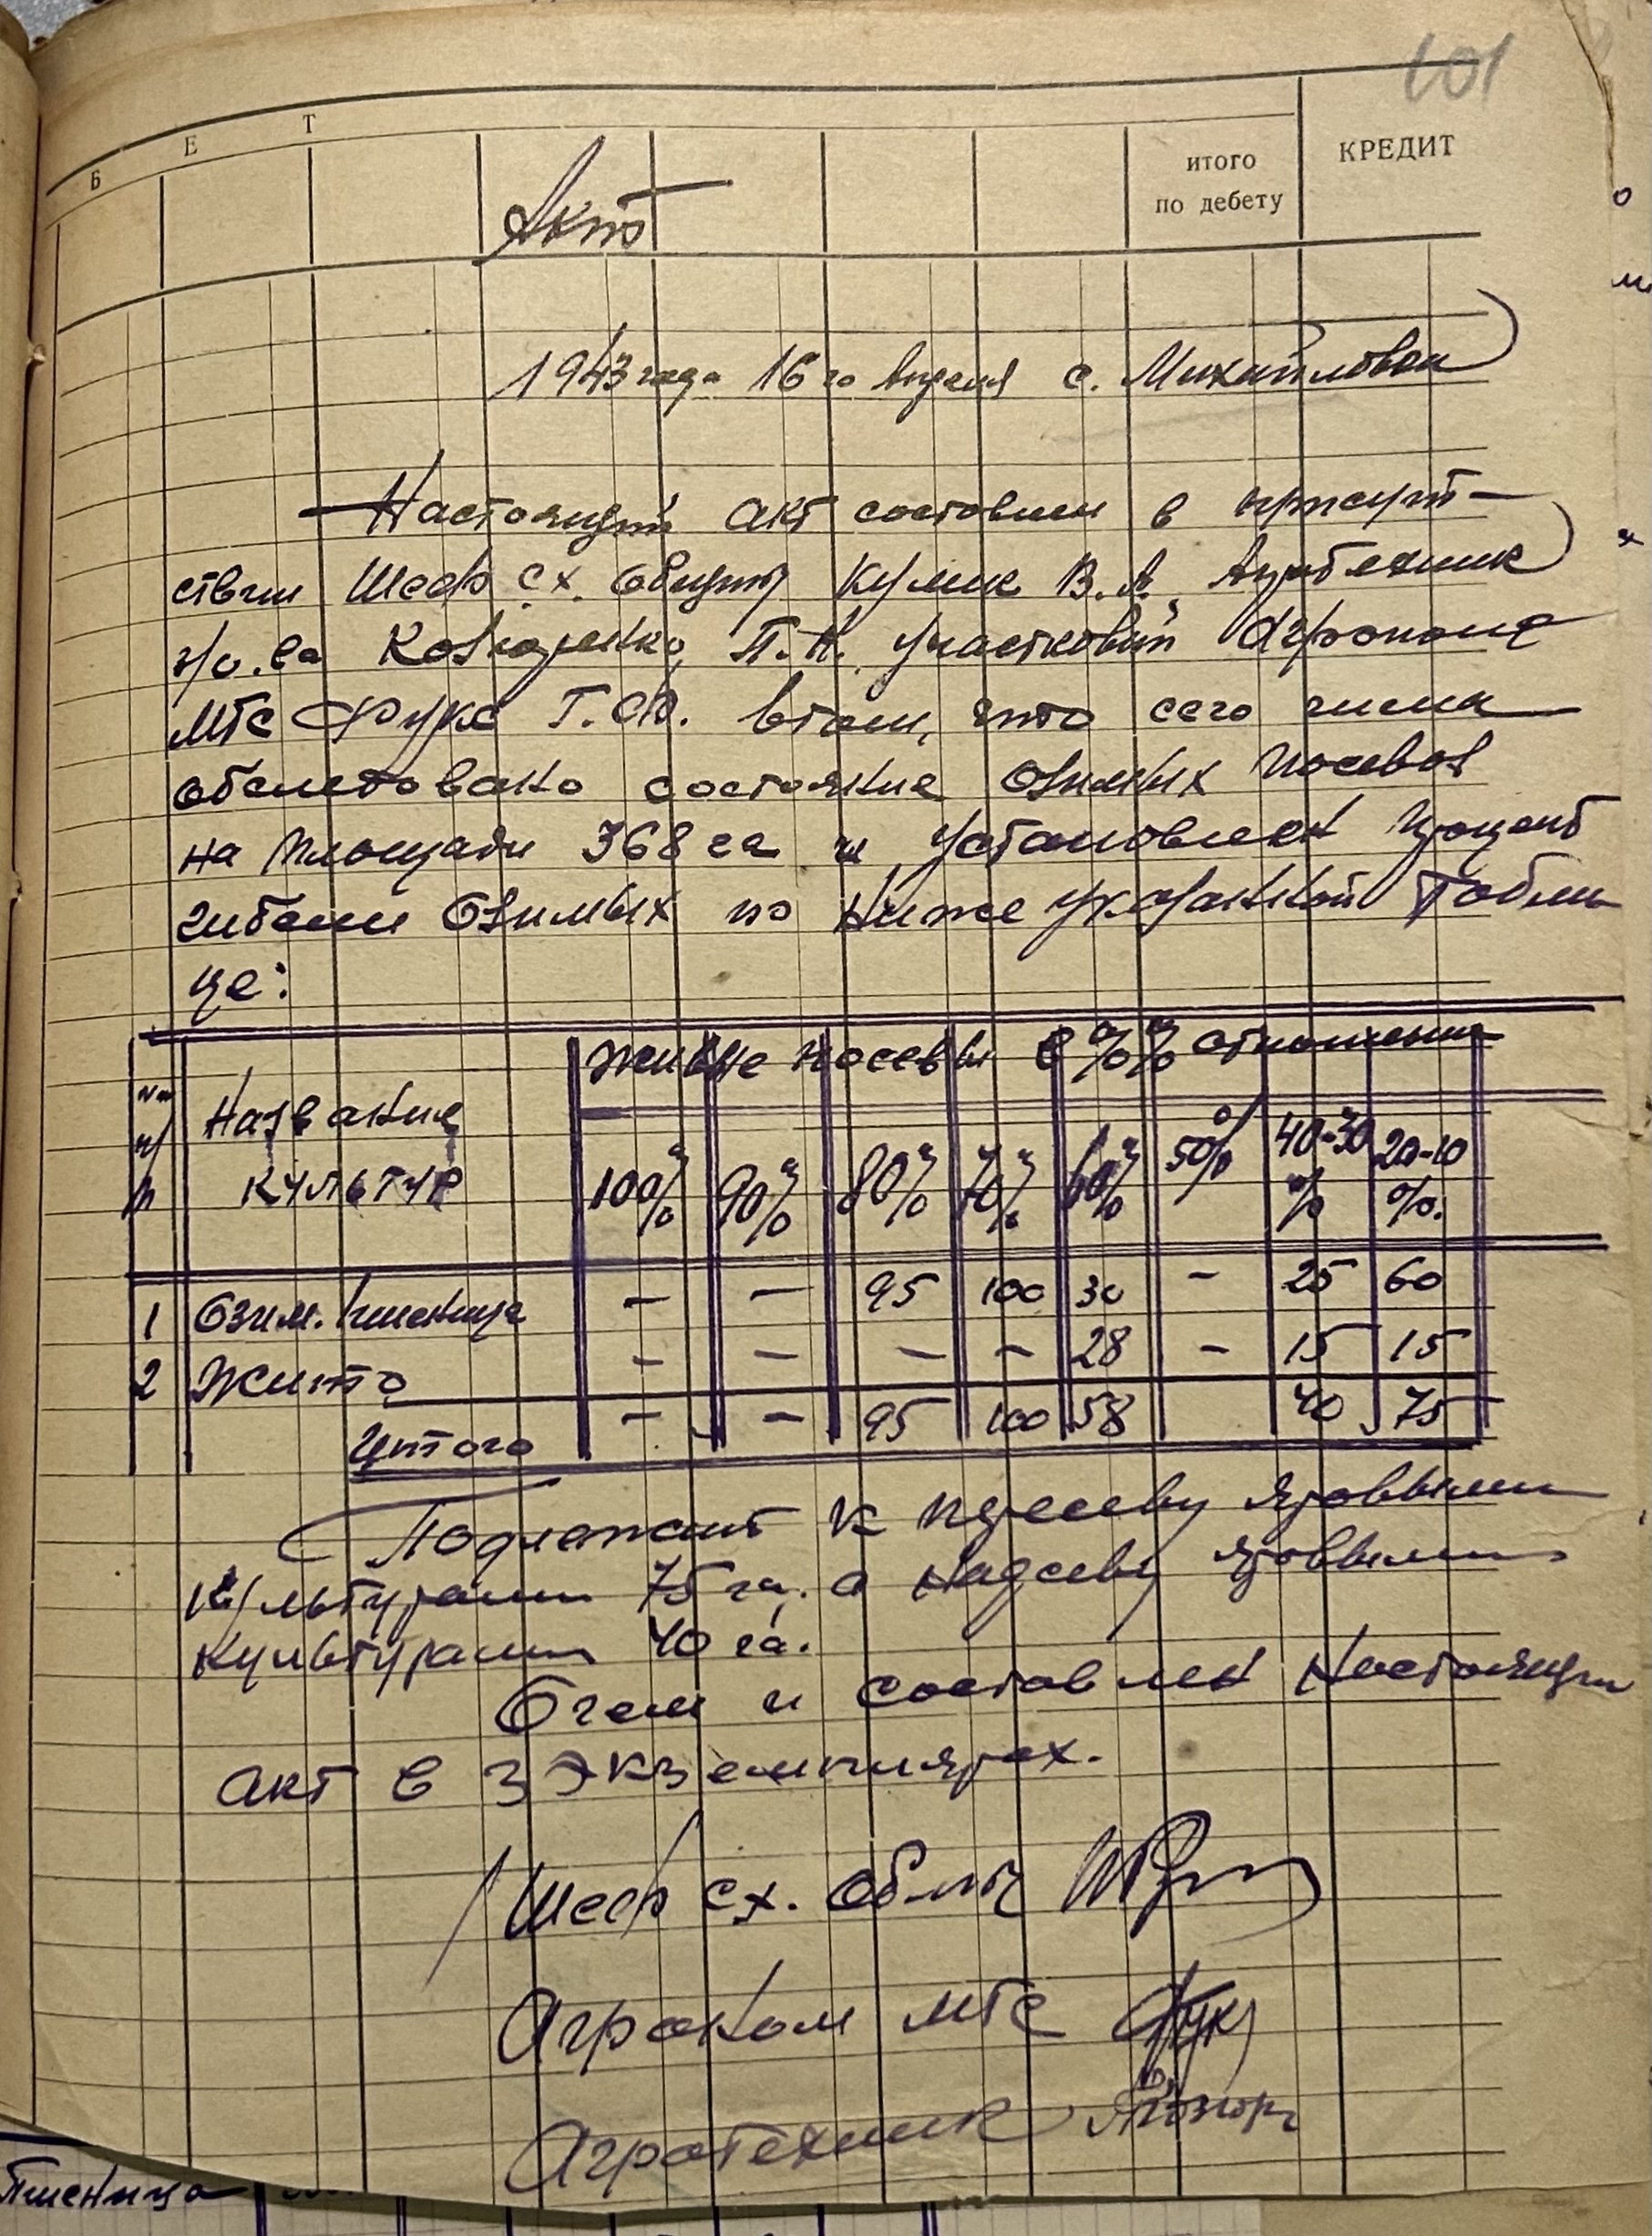 101
Б Е Т
итого
по дебету
КРЕДИТ
Акт
1943 года 16го Апреля с. Михайловка
Настоящий акт составлен в присут-
ствии Шеф с.х. общины Кулик В.А, Агротехник
П.Н. Участковый Агроном
МТС Фукс Г.Ф. втом, что сего числа
обследовано состояние озимых посевов
на площади 368 га и установлен процент
гибели озимых по ниже указанной Табли
це:
п/п
Название
культур
Живые посевы в %% отношении
100% 90% 80% 70% 60% 50% 40-30 % 20-10 %.
1 Озим. пшеница — — 95 100 30 - 25 60
2 Жито — — — - 28 - 15 15
Итого - - 95 100 58 40 75
Подлежит к пересеву яровыми
культурами 75 га. а надсеву яровыми
культурами 40 га.
Очем и составлен настоящий
акт в 3 экземплярах.
Шеф с.х. общины
Агроном МТС Фукс
Агротехник
Пшеница